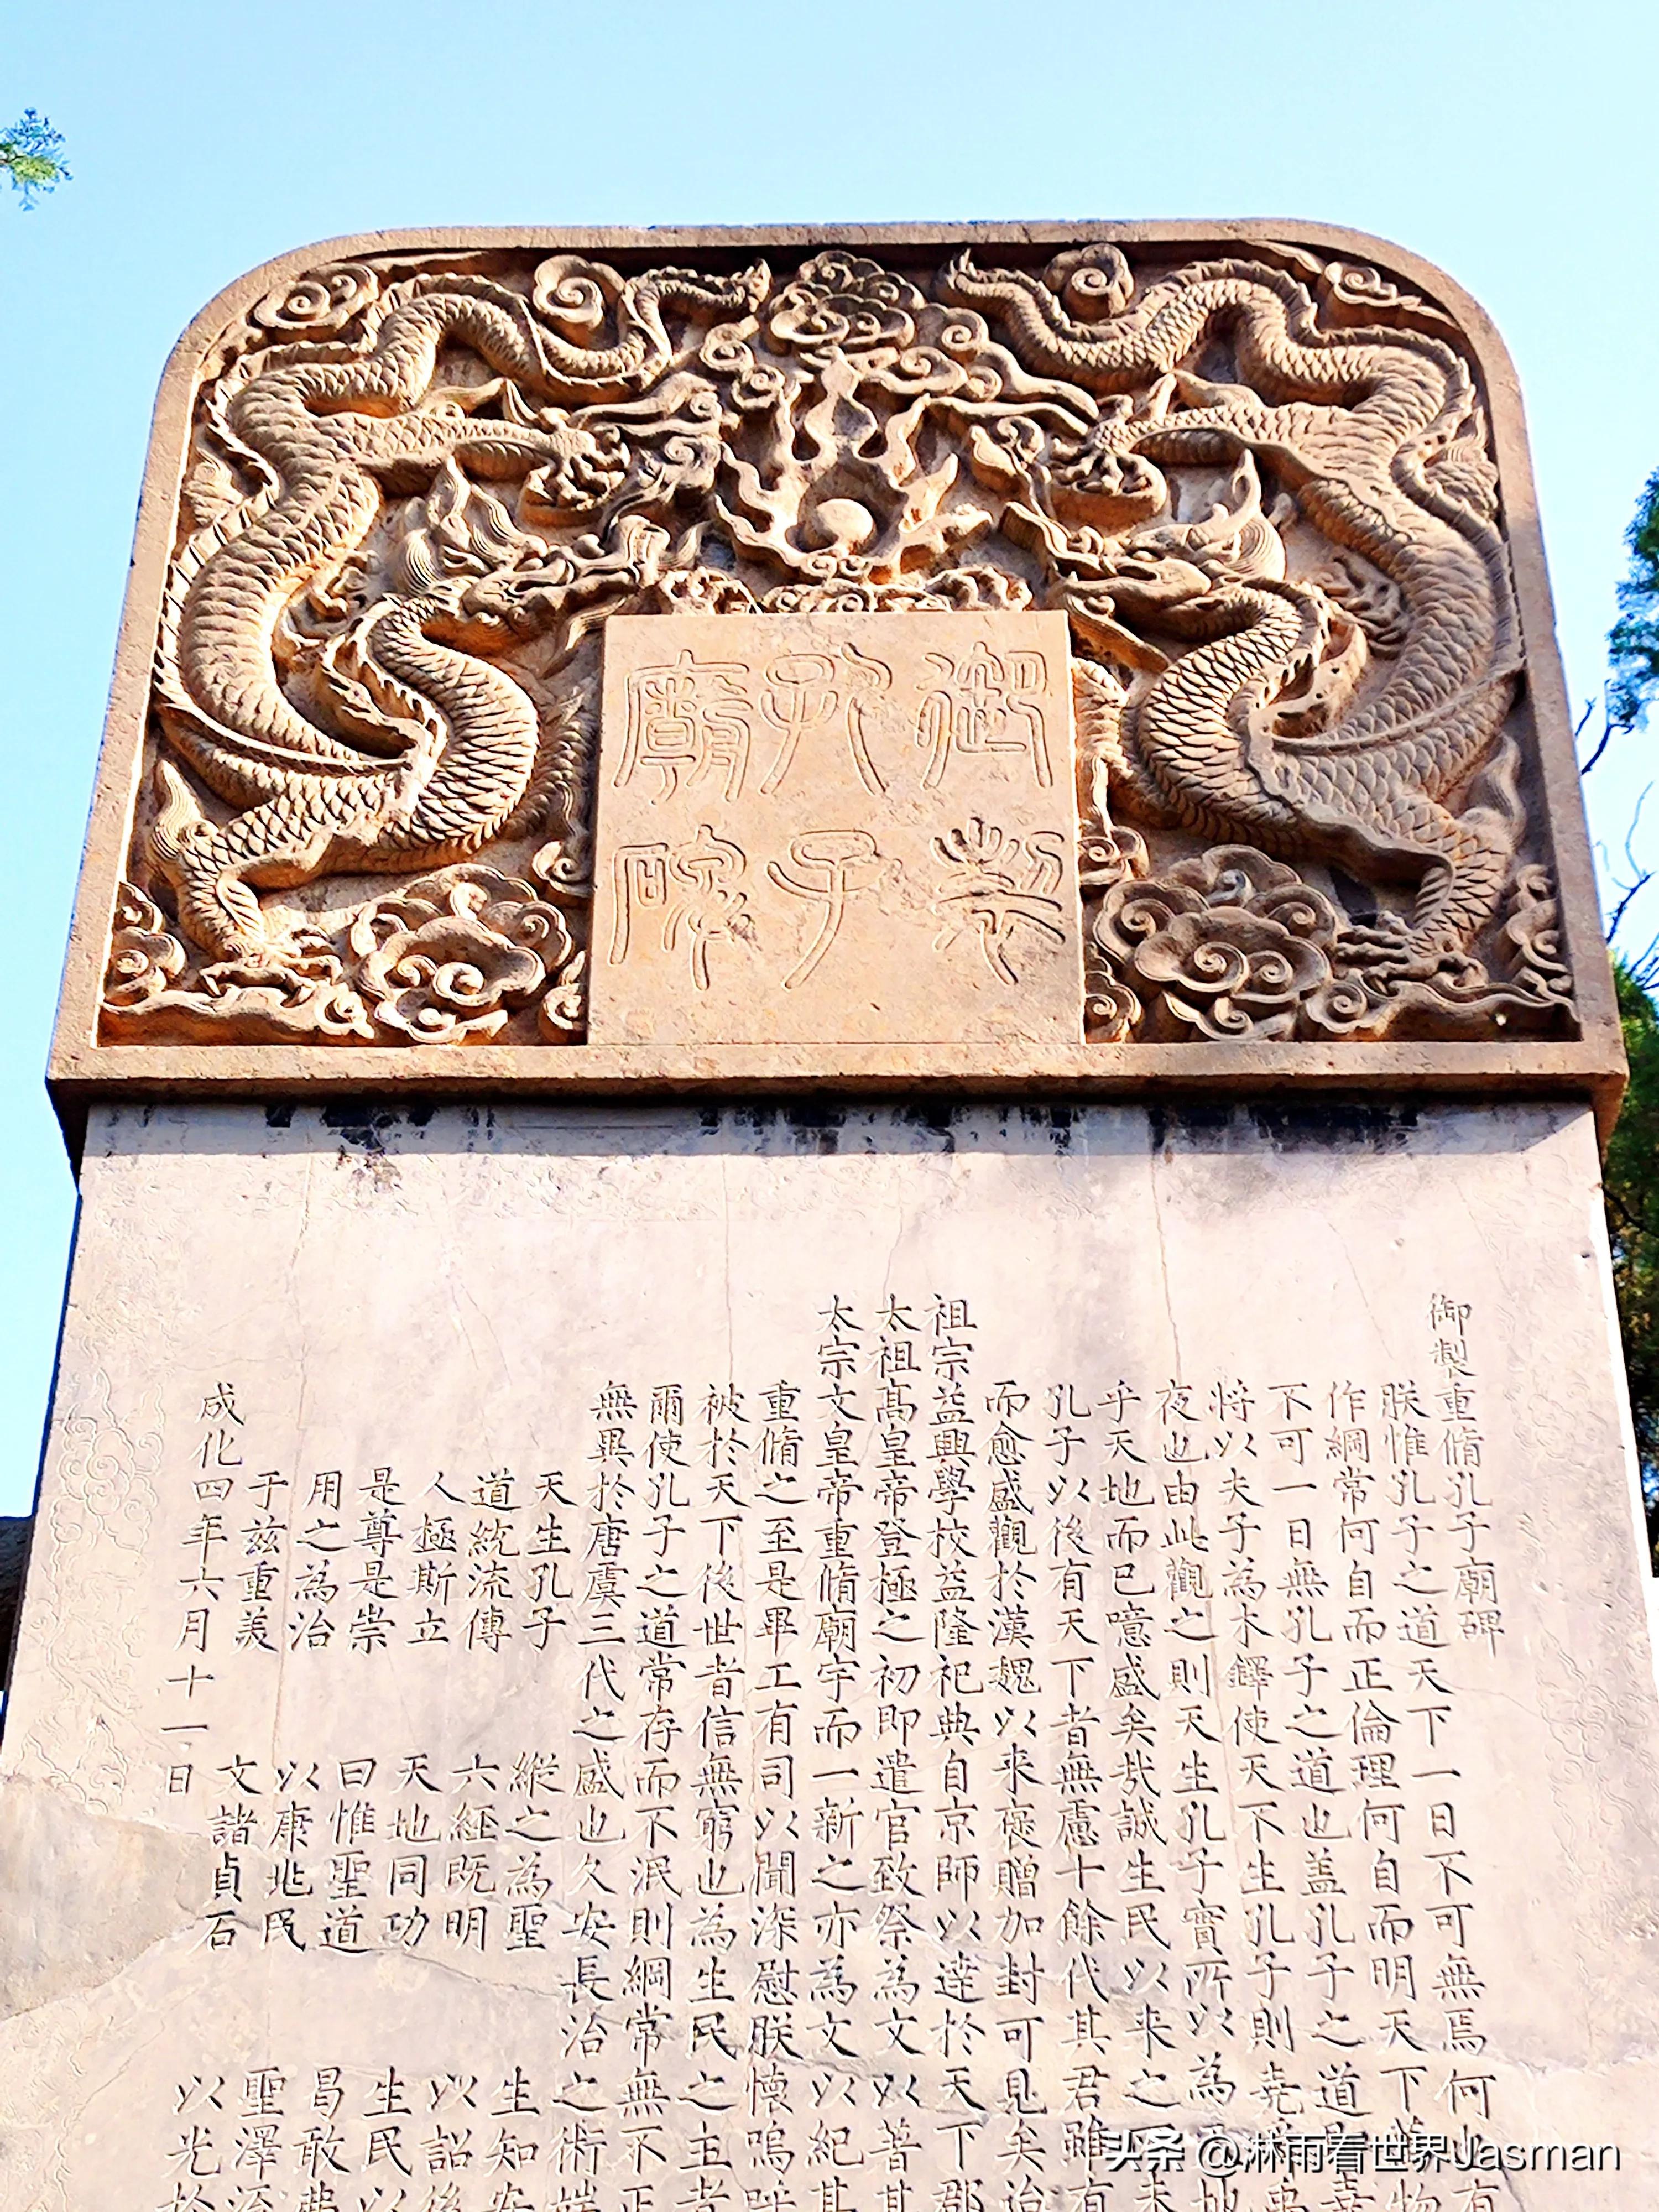 御製
孔子
廟碑
御製重脩孔子廟碑
朕惟孔子之道天下一日不可無焉何有
作綱常何自而正倫理何自而明天下物
不可一日無孔子之道也盖孔子之道
將以夫子為木鐸使天不生孔子則堯禹
夜也由此觀之則天生孔子實所以為地
乎天地而已噫盛矣哉誠生民以来之未
孔子以後有天下者無慮十餘代其君雖有
而愈盛觀於漢魏以来褒贈加封可見矣治
祖宗益興學校益隆祀典自京師以達於天下郡
太祖髙皇帝登極之初即遣官致祭為文以著其
太宗文皇帝重脩廟宇而一新之亦為文以紀其
重脩之至是畢工有司以聞深慰朕懷嗚呼
被於天下後世者信無窮也為生民之主者
爾使孔子之道常存而不泯則綱常無不正
無異於唐虞三代之盛也久安長治之術端
天生孔子 縱之為聖 生知安
道統流傳 六經既明 以詔後
人極斯立 天地同功 生民以
是尊是崇 曰惟聖道 曷敢弗
用之為治 以康兆民 聖澤流
于兹重美 文諸貞石 以光於
成化四年六月十一日
头条 @淋雨看世界Jasman